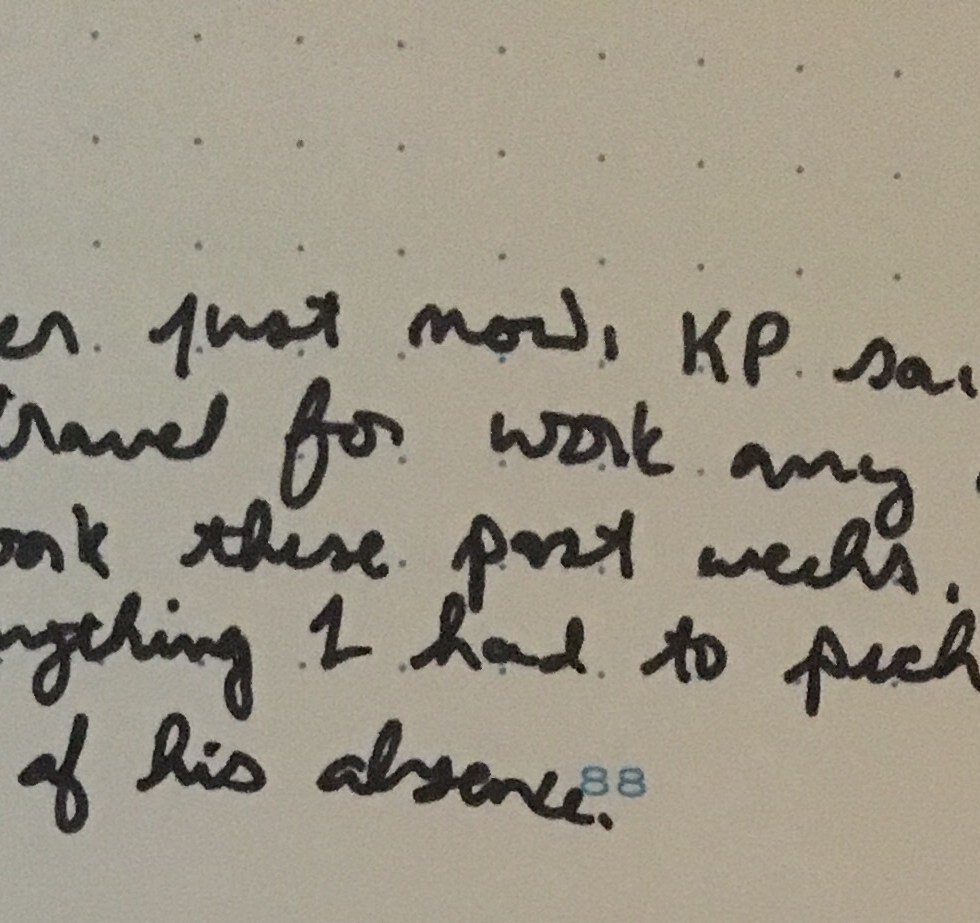 er just now, KP sai
travel for work any
ork these past weeks.
nything I had to pick
of his absence.88